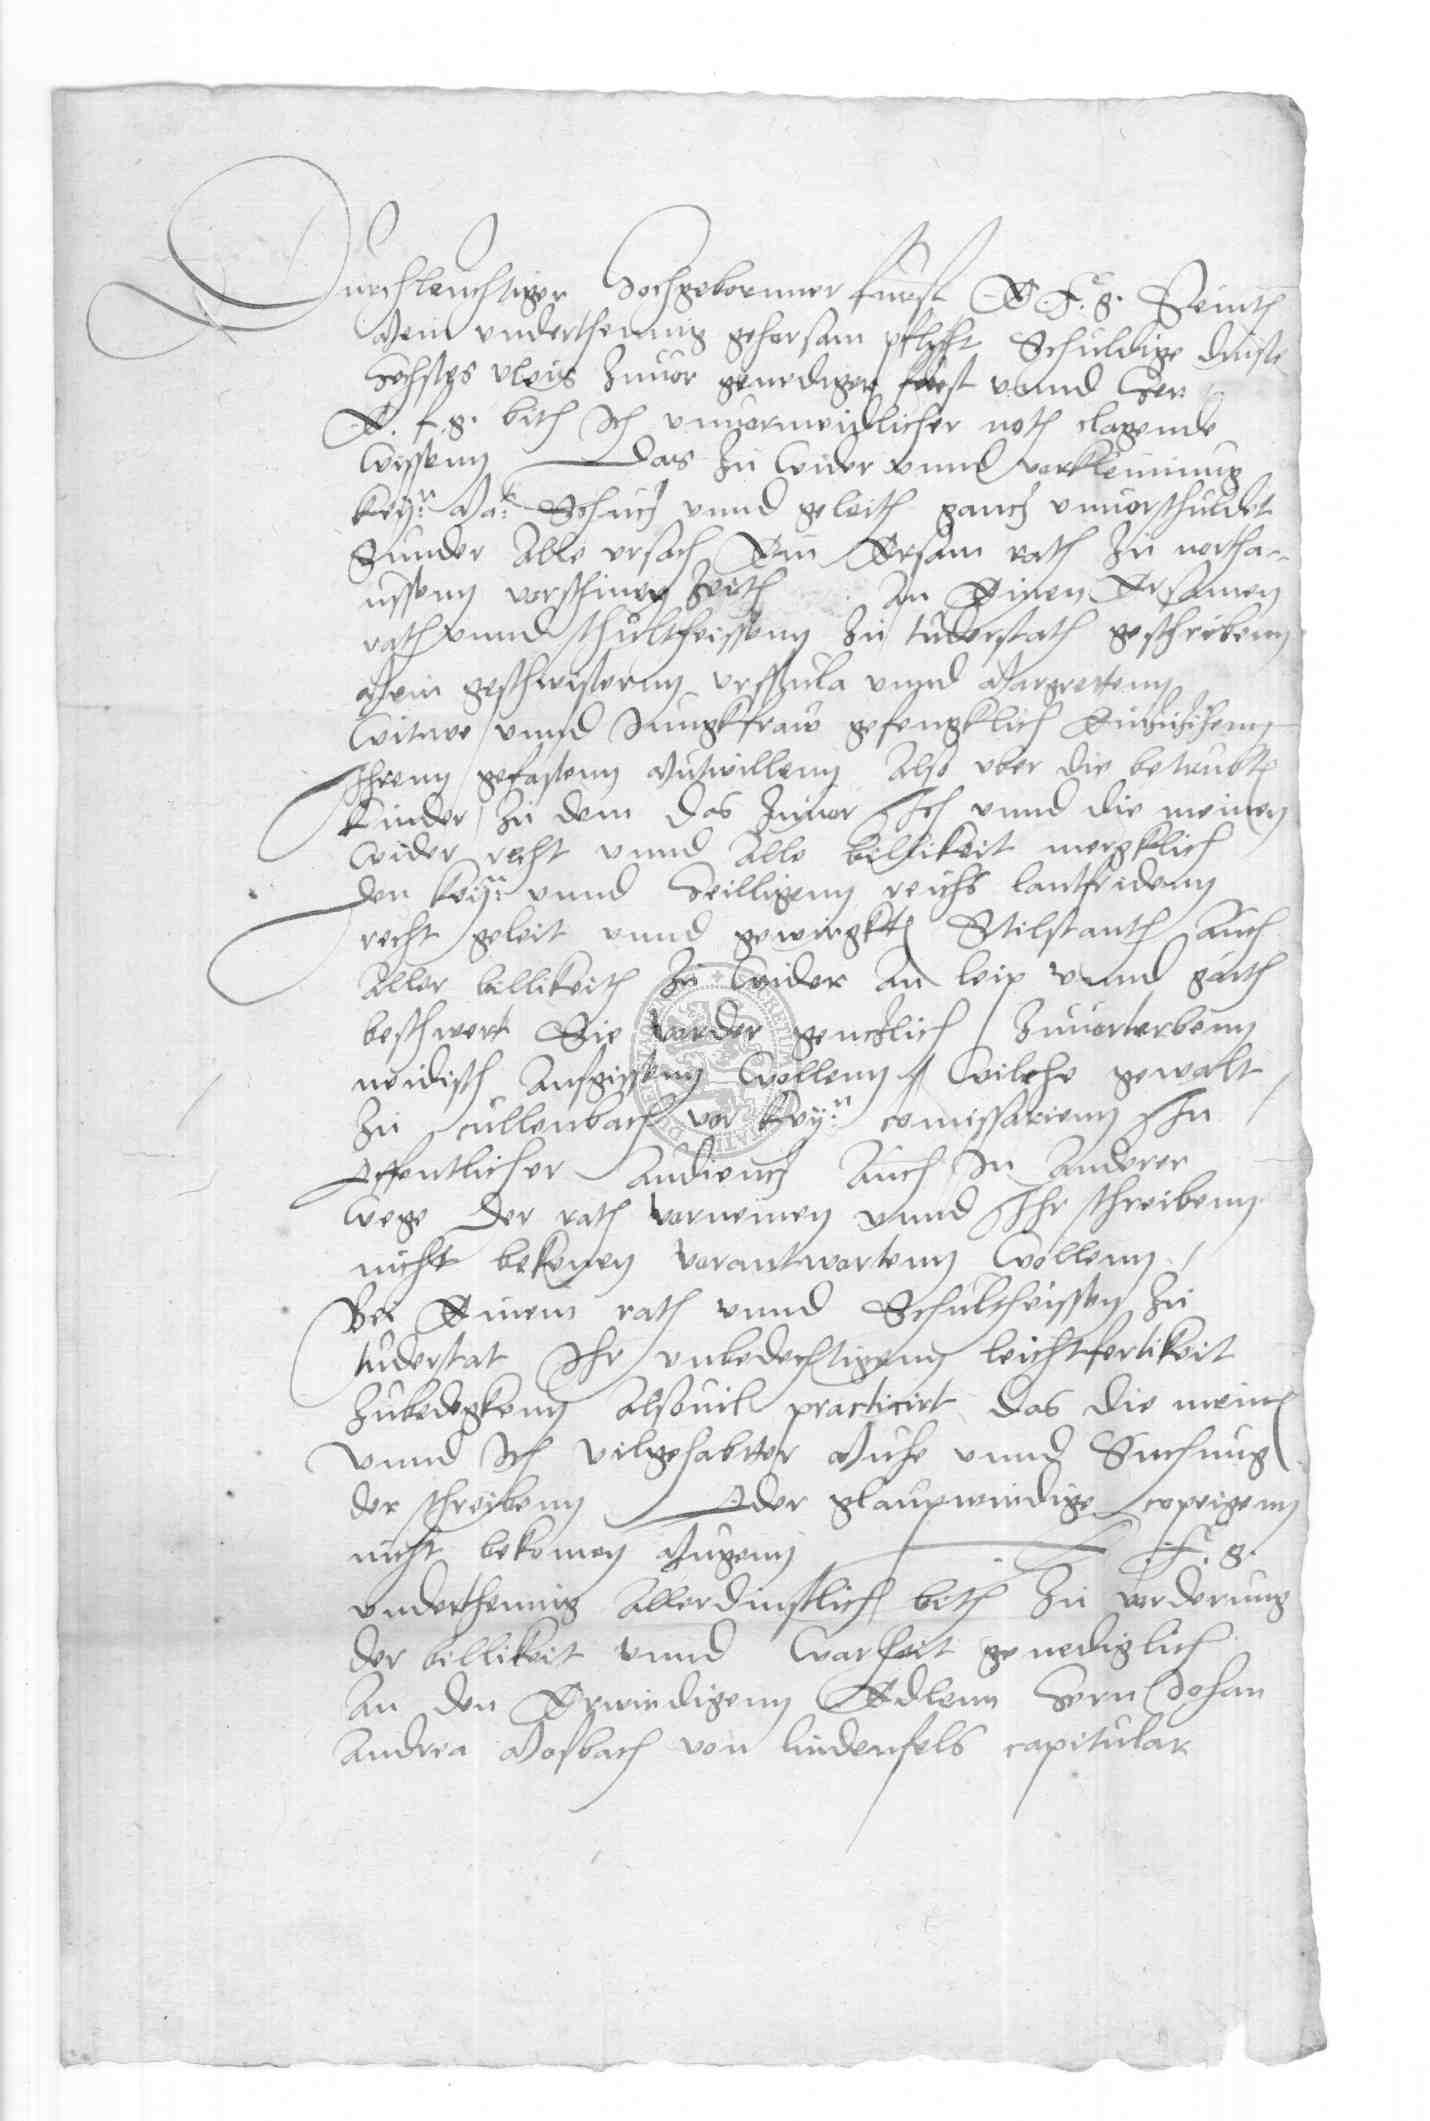 Durchleuchtiger Hochgebornner furst E. F. g. Seint
Mein underthennig gehorsam pflicht Schuldige dinste
Hochstes vleis zuuor genediger furst unnd Her
E. f. g. bith Ich unuormeidlicher noth clagende
wissenn Das zu wider unnd vorkleinung
Key:n Ma:t Schucz unnd geleith gancz unuorschuldet
Sunder Alle ursach Ein Ersam rath zu northa-
ussenn vorschiner Zeith An Einen Ersamen
rath unnd schultheissenn zu tuderstath geschribenn
Mein geschwisternn urssula unnd Margrettenn
witwe unnd Jungkfraw gefengklich
Ihrenn gefastenn Mutwillenn Also uber die betrubte
kinder zu dem das zuuor Ich unnd die meinen
wider recht unnd Alle billikeit mergklich
den Key:n unnd Heilligenn reichs lantfridenn
recht geleit unnd gewirgkt Stilstanth Auch
Aller billikeith zu wider An leip unnd guth
beschwert Sie vorder genczlich zuuorterbenn
neidisch wollenn wilche gewalt
zu cullenbach vor Key:n comissarienn In
offentlicher Audiencz Auch In Anderer
wege der rath vorneinen unnd Ihr schreibenn
nicht bekenen vorantwortenn wollenn
Bei Einem rath unnd Schultheissen zu
tuderstat Ihr unbedechtigenn leichtfertikeit
zubedegkenn Alsouil practicirt das die meinen
unnd Ich vilgehabtter Muhe unnd Suchung
der schreibenn Oder glaupwirdige copeigenn
nicht bekomen Mugenn E. F. g.
underthennig Allerdinstlich bith zu vorderung
der billikeit unnd warheit genediglich
An den Erwirdigenn Edlenn Hern Johan
Andrea Mosbach von lindenfels capitular